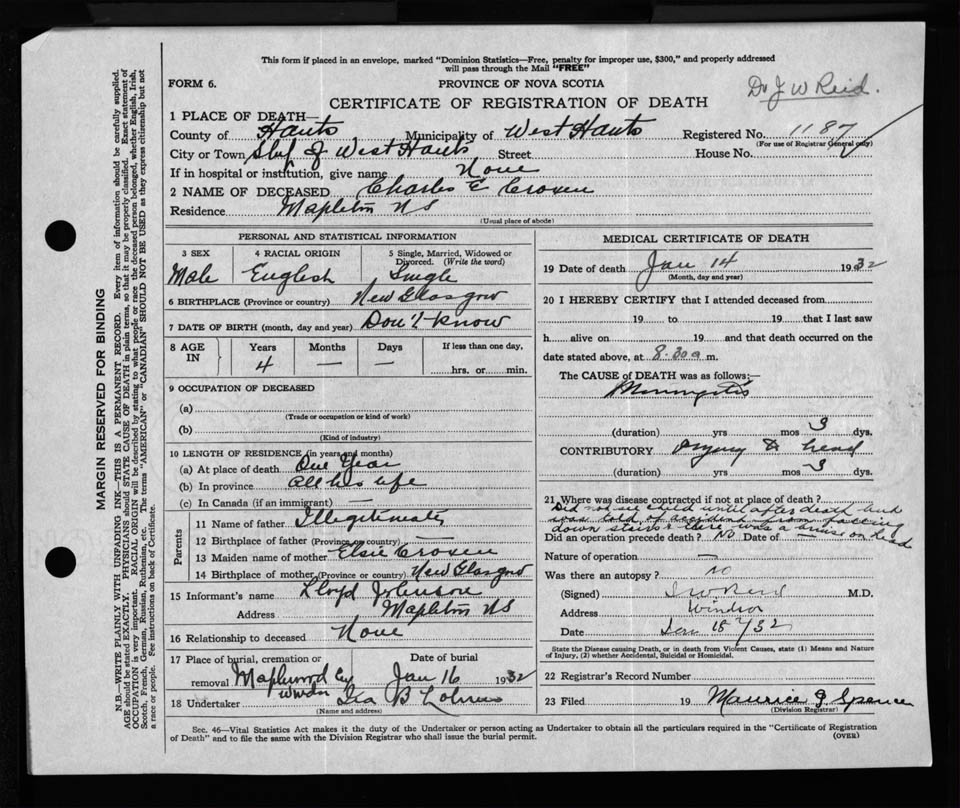 This form if placed in an envelope, marked "Dominion Statistics—Free, penalty for improper use, $300," and properly addressed
will pass through the Mail "FREE"
FORM 6.
PROVINCE OF NOVA SCOTIA
Dr J W Reid.
CERTIFICATE OF REGISTRATION OF DEATH
1 PLACE OF DEATH—
County of Hants Municipality of West Hants Registered No. 1187
(For use of Registrar General only)
City or Town of West Hants Street House No.
If in hospital or institution, give name None
2 NAME OF DECEASED Charles E Croxen
Residence Mapleton N S
(Usual place of abode)
PERSONAL AND STATISTICAL INFORMATION
3 SEX 4 RACIAL ORIGIN 5 Single, Married, Widowed or Divorced. (Write the word)
Male English Single
6 BIRTHPLACE (Province or country) New Glasgow
7 DATE OF BIRTH (month, day and year) Don't know
8 AGE IN Years Months Days If less than one day,
4 — — hrs. or min.
9 OCCUPATION OF DECEASED
(a)
(Trade or occupation or kind of work)
(b)
(Kind of industry)
10 LENGTH OF RESIDENCE (in years and months)
(a) At place of death One Year
(b) In province all his life
(c) In Canada (if an immigrant) —
Parents
11 Name of father Illegitimate
12 Birthplace of father (Province or country) —
13 Maiden name of mother Elsie Croxen
14 Birthplace of mother (Province or country) New Glasgow
15 Informant's name Lloyd Johnson
Address Mapleton N S
16 Relationship to deceased None
17 Place of burial, cremation or removal Date of burial
Maplewood Cy Windsor Jan 16 1932
18 Undertaker Ira B
(Name and address)
MEDICAL CERTIFICATE OF DEATH
19 Date of death Jan 14 1932
(Month, day and year)
20 I HEREBY CERTIFY that I attended deceased from
19 to 19 that I last saw
h alive on 19 and that death occurred on the
date stated above, at 8.30 a m.
The CAUSE of DEATH was as follows:—
Meningitis
(duration) yrs mos 3 dys.
CONTRIBUTORY injury to head
(duration) yrs mos 3 dys.
21 Where was disease contracted if not at place of death?
Did not see child until after death but
was told of accident from falling
down stairs - there was a bruise on head
Did an operation precede death? NO Date of —
Nature of operation —
Was there an autopsy? no
(Signed) J W Reid M.D.
Address Windsor
Date Jan 15 /32
State the Disease causing Death, or in death from Violent Causes, state (1) Means and Nature of Injury, (2) whether Accidental, Suicidal or Homicidal.
22 Registrar's Record Number
23 Filed 19 Maurice J Spence
(Division Registrar)
Sec. 46—Vital Statistics Act makes it the duty of the Undertaker or person acting as Undertaker to obtain all the particulars required in the "Certificate of Registration
of Death" and to file the same with the Division Registrar who shall issue the burial permit.
(OVER)
MARGIN RESERVED FOR BINDING
N.B.—WRITE PLAINLY WITH UNFADING INK—THIS IS A PERMANENT RECORD. Every item of information should be carefully supplied.
AGE should be stated EXACTLY. PHYSICIANS should STATE CAUSE OF DEATH in plain terms, so that it may be properly classified. Exact statement of
OCCUPATION is very important. RACIAL ORIGIN will be described by stating to what people or race the deceased person belonged, whether English, Irish,
Scotch, French, German, Russian, Ruthenian, etc. The terms "AMERICAN" or "CANADIAN" SHOULD NOT BE USED as they express citizenship but not
a race or people. See instructions on back of Certificate.